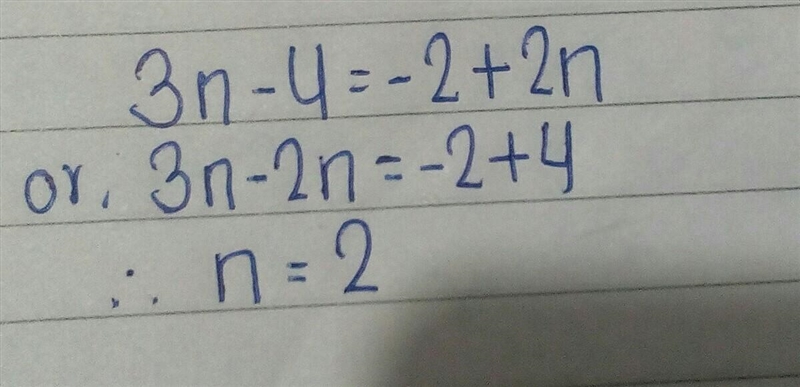 3n-4=-2+2n
or, 3n-2n=-2+4
∴ n=2